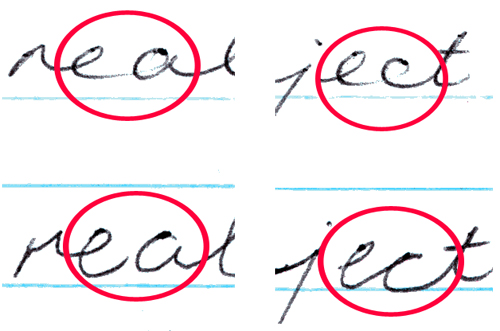 real ject
real ject